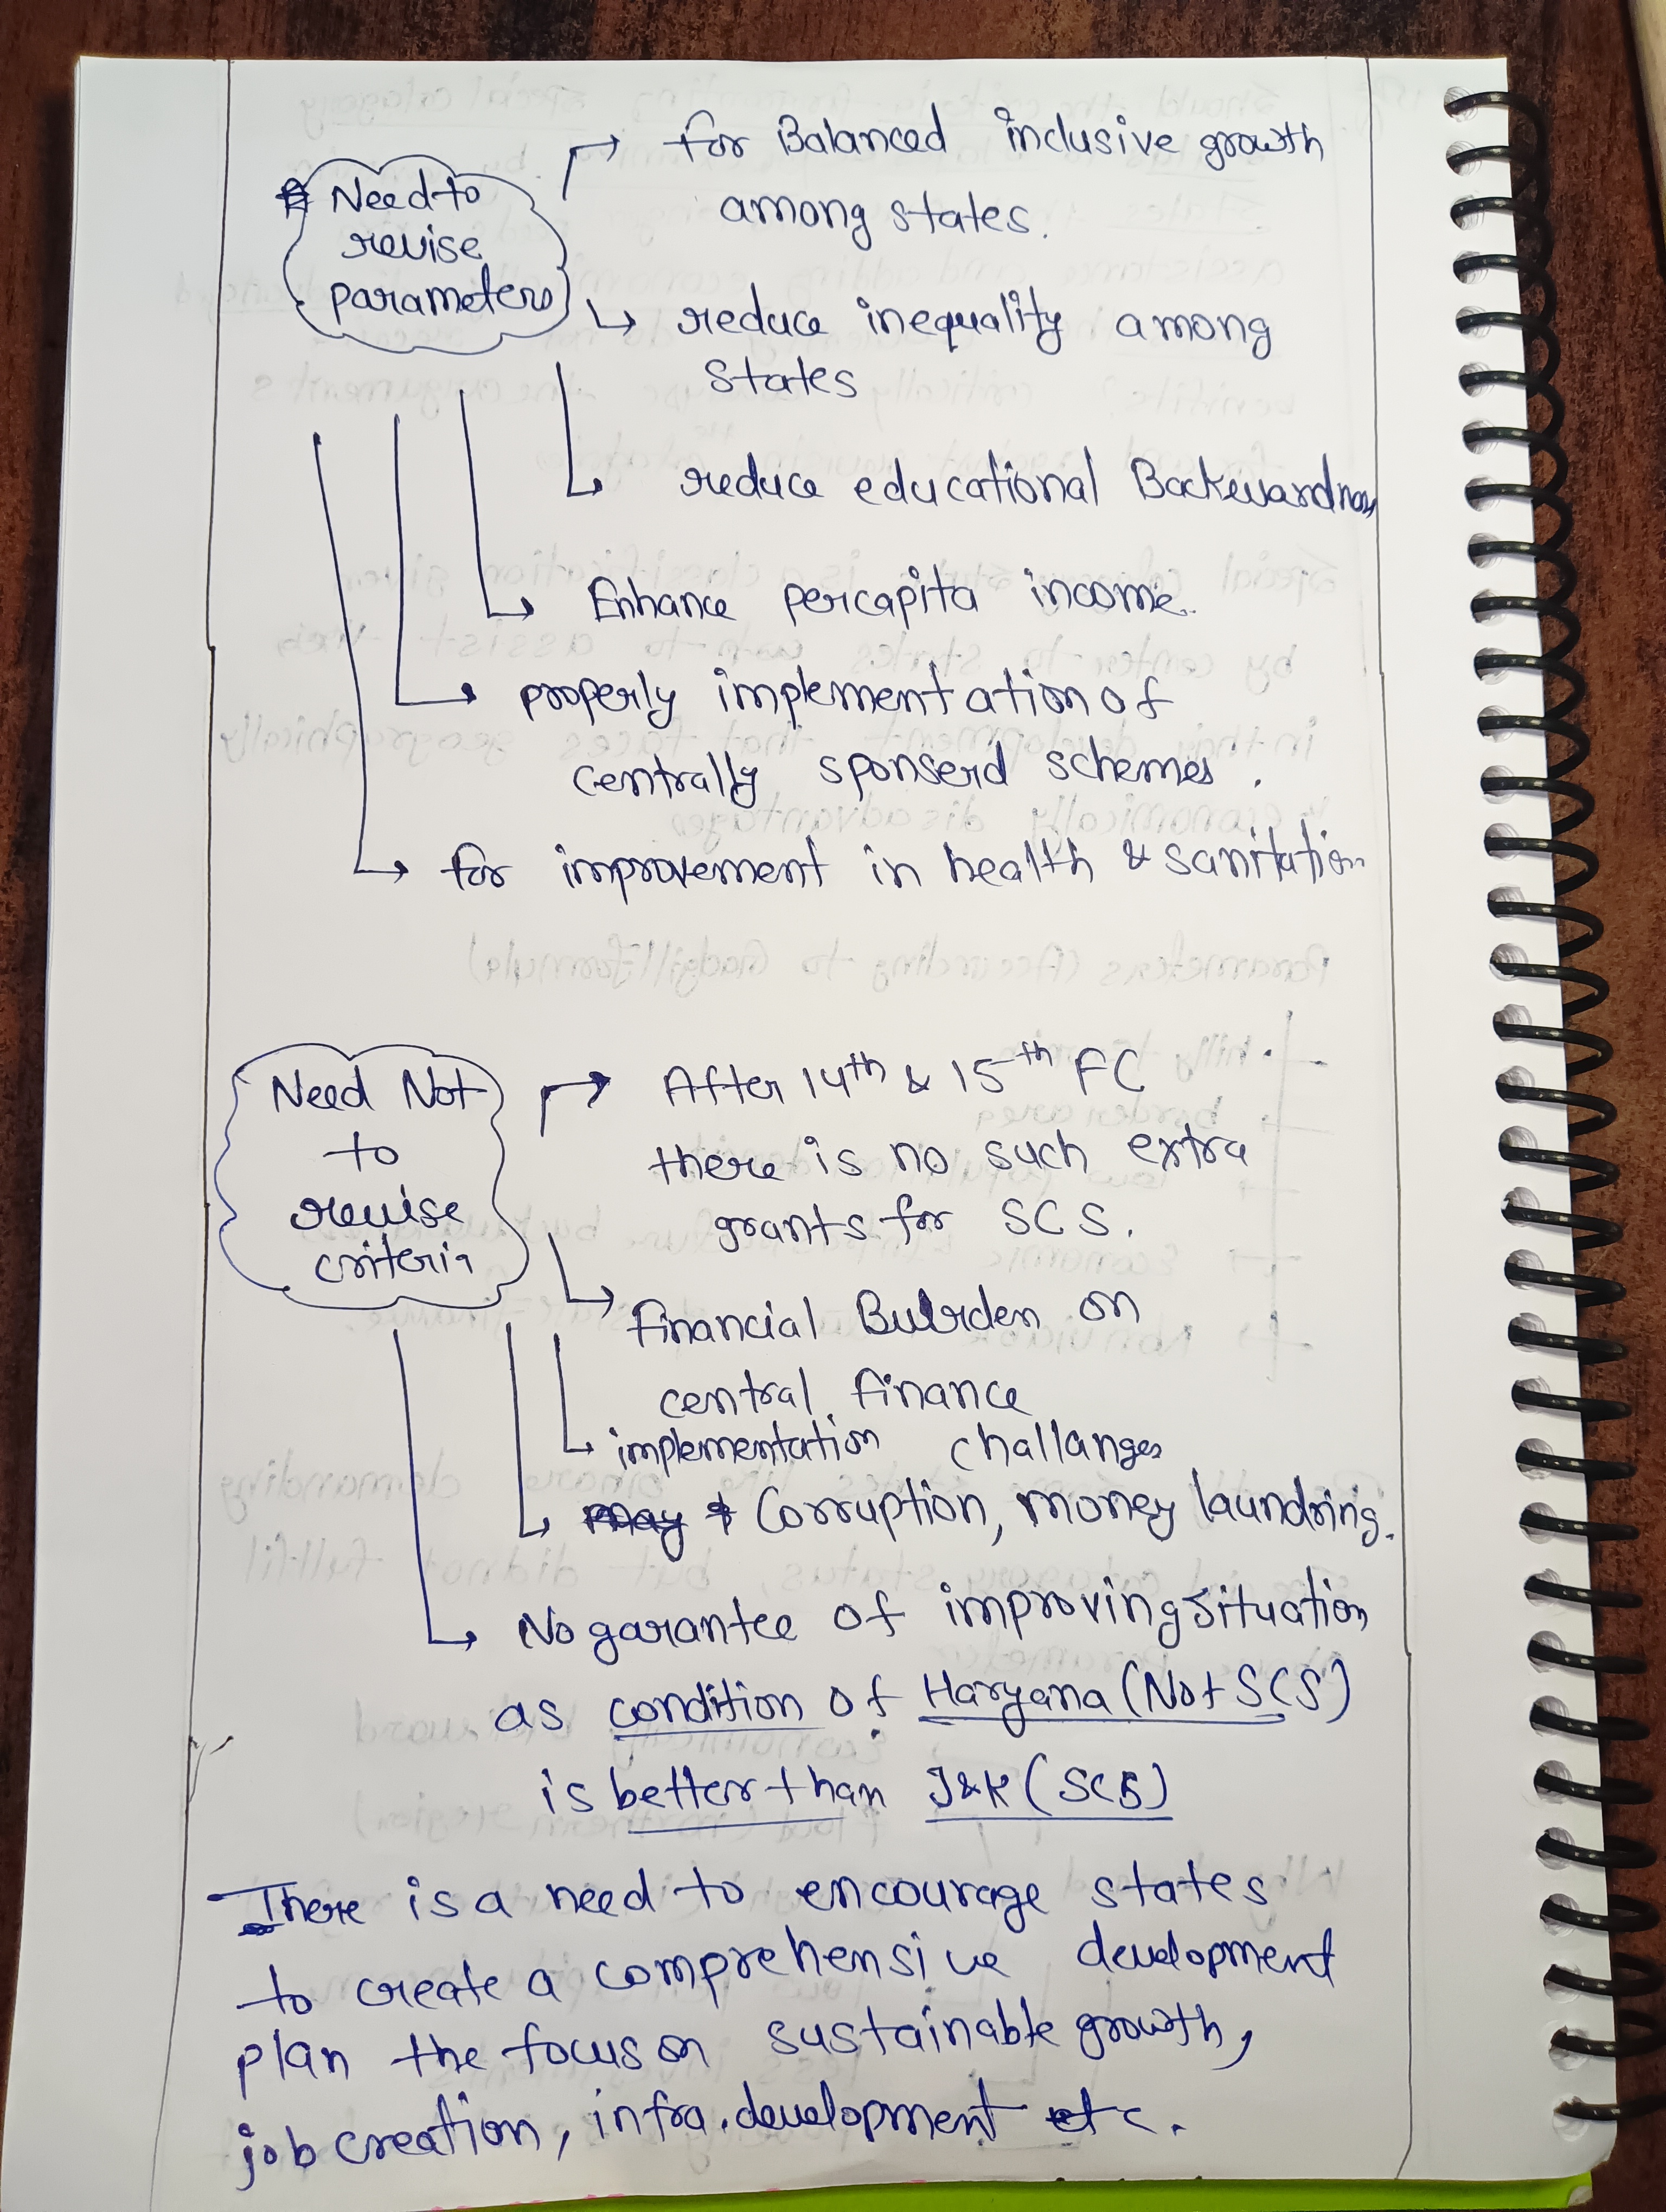 Need to
revise
parameters
for Balanced inclusive growth
among states.
reduce inequality among
States
reduce educational Backwardness
Enhance percapita income.
properly implementation of
centrally sponserd schemes.
for improvement in health & sanitation
Need Not
to
revise
criteria
After 14th & 15th FC
there is no such extra
grants for SCS.
financial Burden on
central finance
implementation challanges
Corruption, money laundring.
No garantee of improving situation
as condition of Haryana (Not SCS)
is better than J&K (SCS)
There is a need to encourage states
to create a comprehensive development
plan the focus on sustainable growth,
job creation, infra. development etc.